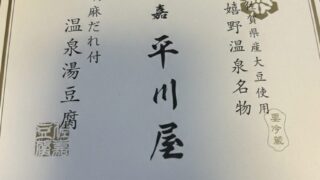 賀県産大豆使用
嬉野温泉名物
要冷蔵
嘉 平川屋
麻だれ付
温泉湯豆腐
佐嘉
豆腐